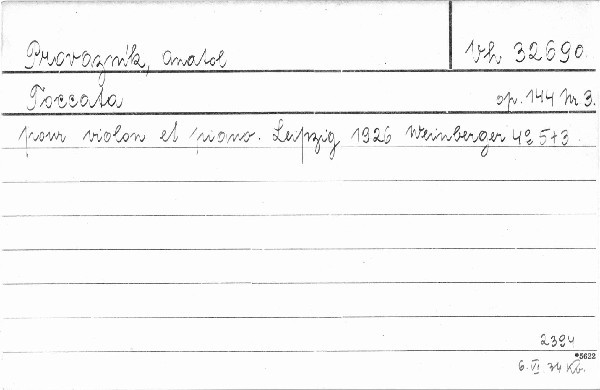 Provazník, Anatol Vh 32690.
Toccata op. 144 Nr 3.
pour violon et piano. Leipzig 1926 Weinberger 4º 5+3.
2394
•5622
6. VI 34 Kb.